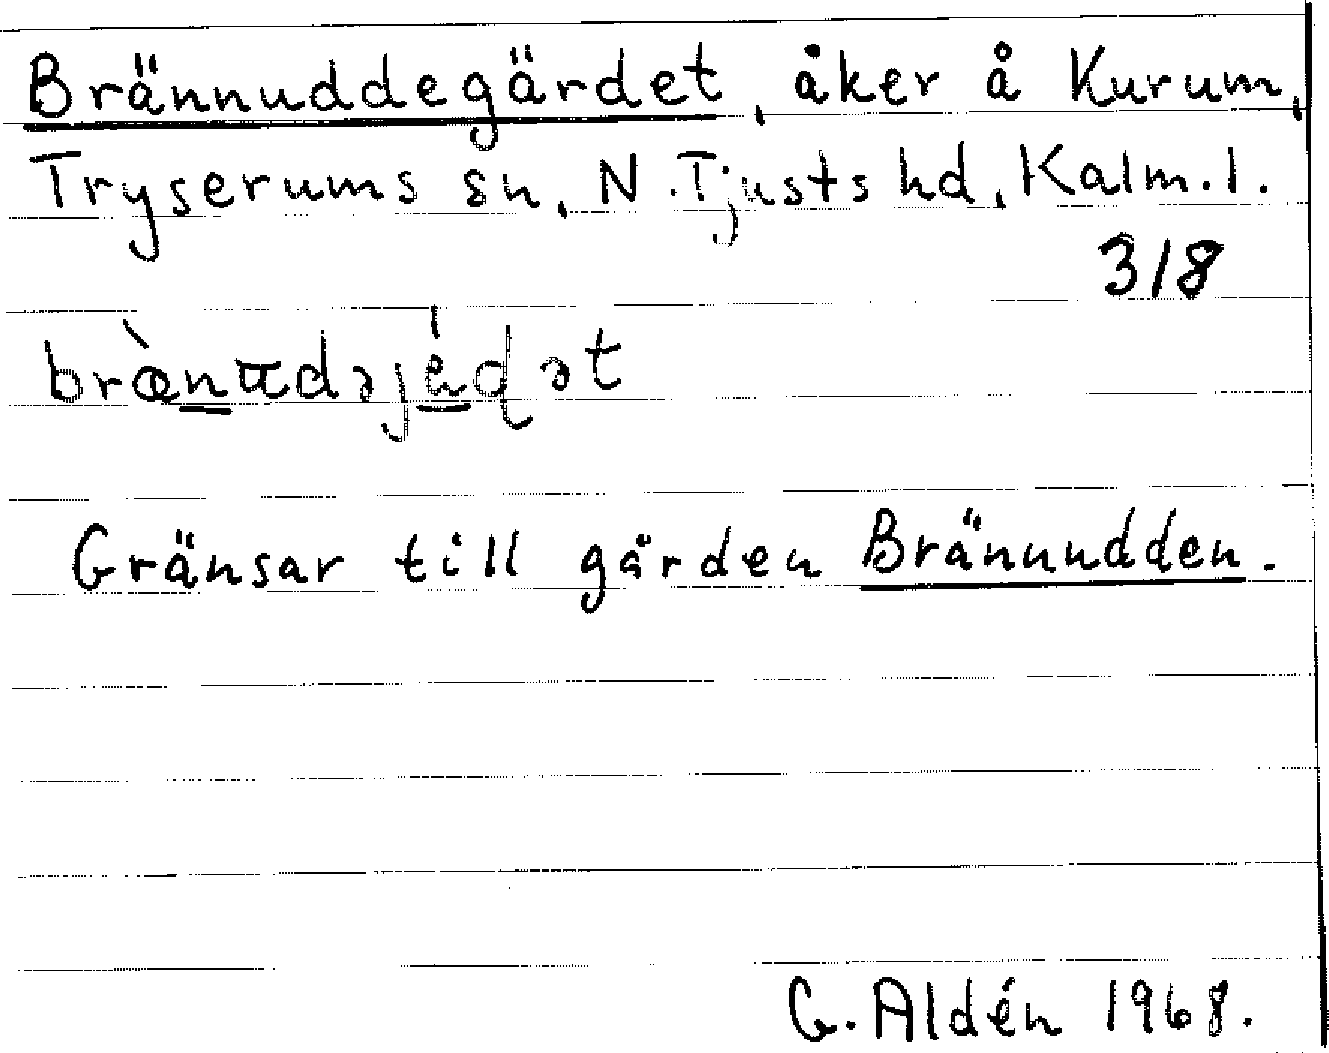 Brännuddegärdet, åker å Kurum,
Tryserums sn, N. Tjusts hd, Kalm. l.
318
Gränsar till gården Brännudden.
G. Aldén 1968.